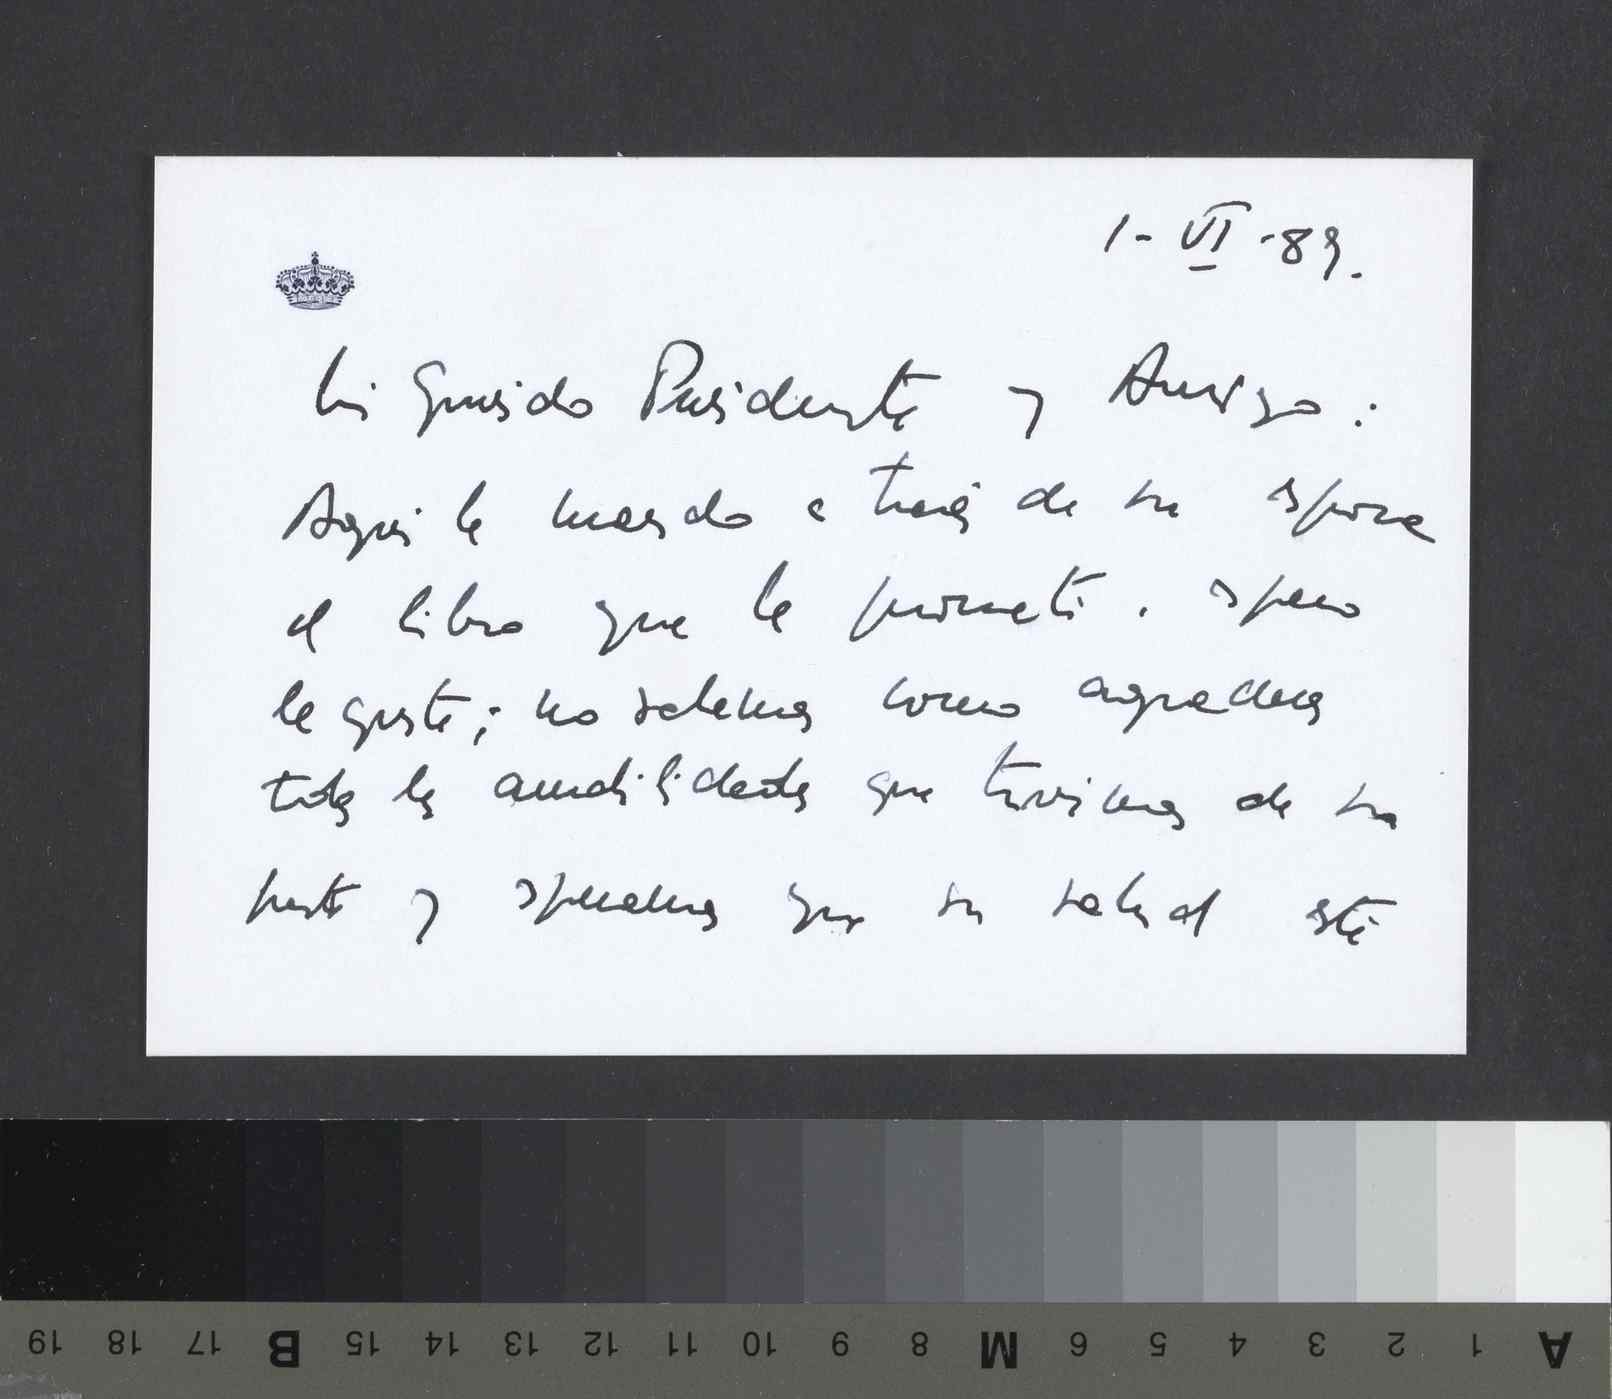 1-VI-89.
Mi querido Presidente y Amigo:
Aqui le mando a través de su esposa
el libro que le prometí. espero
le guste; no sabemos como agradecer
todas las amabilidades que tuvimos de su
parte y esperamos que su salud esté
19 18 17 B 15 14 13 12 11 10 9 8 M 6 5 4 3 2 1 A